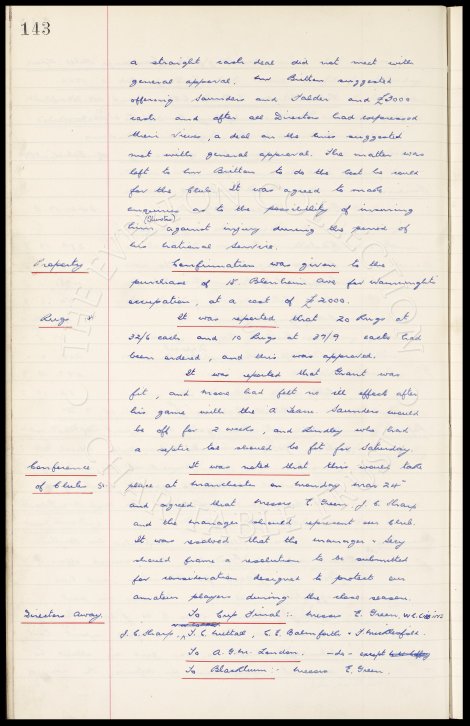 143
a straight cash deal did not meet with
general approval. Mr Britton suggested
offering Saunders and Falder and £3000
cash and after all Directors had expressed
their views, a deal on the lines suggested
met with general approval. The matter was
left to Mr Britton to do the best he could
for the Club. It was agreed to make
enquiries as to the possibility of insuring
him against injury during the period of
his National Service.
Property Confirmation was given to the
purchase of 18. Blenheim Ave for Wainwright's
occupation, at a cost of £2000.
Rugs It was reported that 20 Rugs at
32/6 each and 10 Rugs at 39/9 each had
been ordered, and this was approved.
It was reported that Grant was
fit, and Moore had felt no ill effects after
his game with the A Team. Saunders would
be off for 2 weeks, and Lindley who had
a septic toe should be fit for Saturday.
Conference It was noted that this would take
of Clubs place at Manchester on Monday Mar 24th
and agreed that Messrs E. Green, J. C. Sharp
and the Manager should represent our Club.
It was resolved that the Manager & Secy
should frame a resolution to be submitted
for consideration designed to protect our
amateur players during the close season.
Directors Away. To Cup Final :- Messrs E. Green, W. C.
J. C. Sharp, T. C. Nuttall, C. E. Balmforth &
To A.G.M. London. -do- except
To Blackburn :- Messrs E. Green.
THE EVERTON COLLECTION
CHARITABLE